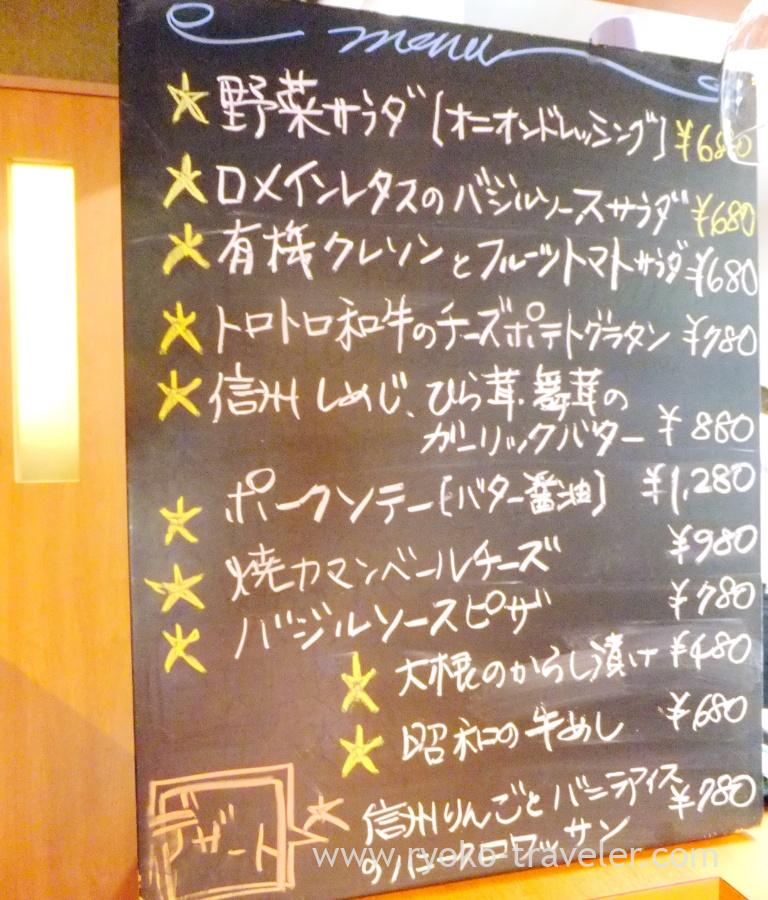 menu
★野菜サラダ〔オニオンドレッシング〕 ¥680
★ロメインレタスのバジルソースサラダ ¥680
★有機クレソンとフルーツトマトサラダ ¥680
★トロトロ和牛のチーズポテトグラタン ¥780
★信州しめじ、ひら茸、舞茸の
ガーリックバター ¥880
★ポークソテー〔バター醤油〕 ¥1,280
★焼カマンベールチーズ ¥980
★バジルソースピザ ¥780
★大根のからし漬け ¥480
★昭和の牛めし ¥680
デザート
★信州りんごとバニラアイス ¥780
のバニラクロワッサン
www.ryoko-traveler.com